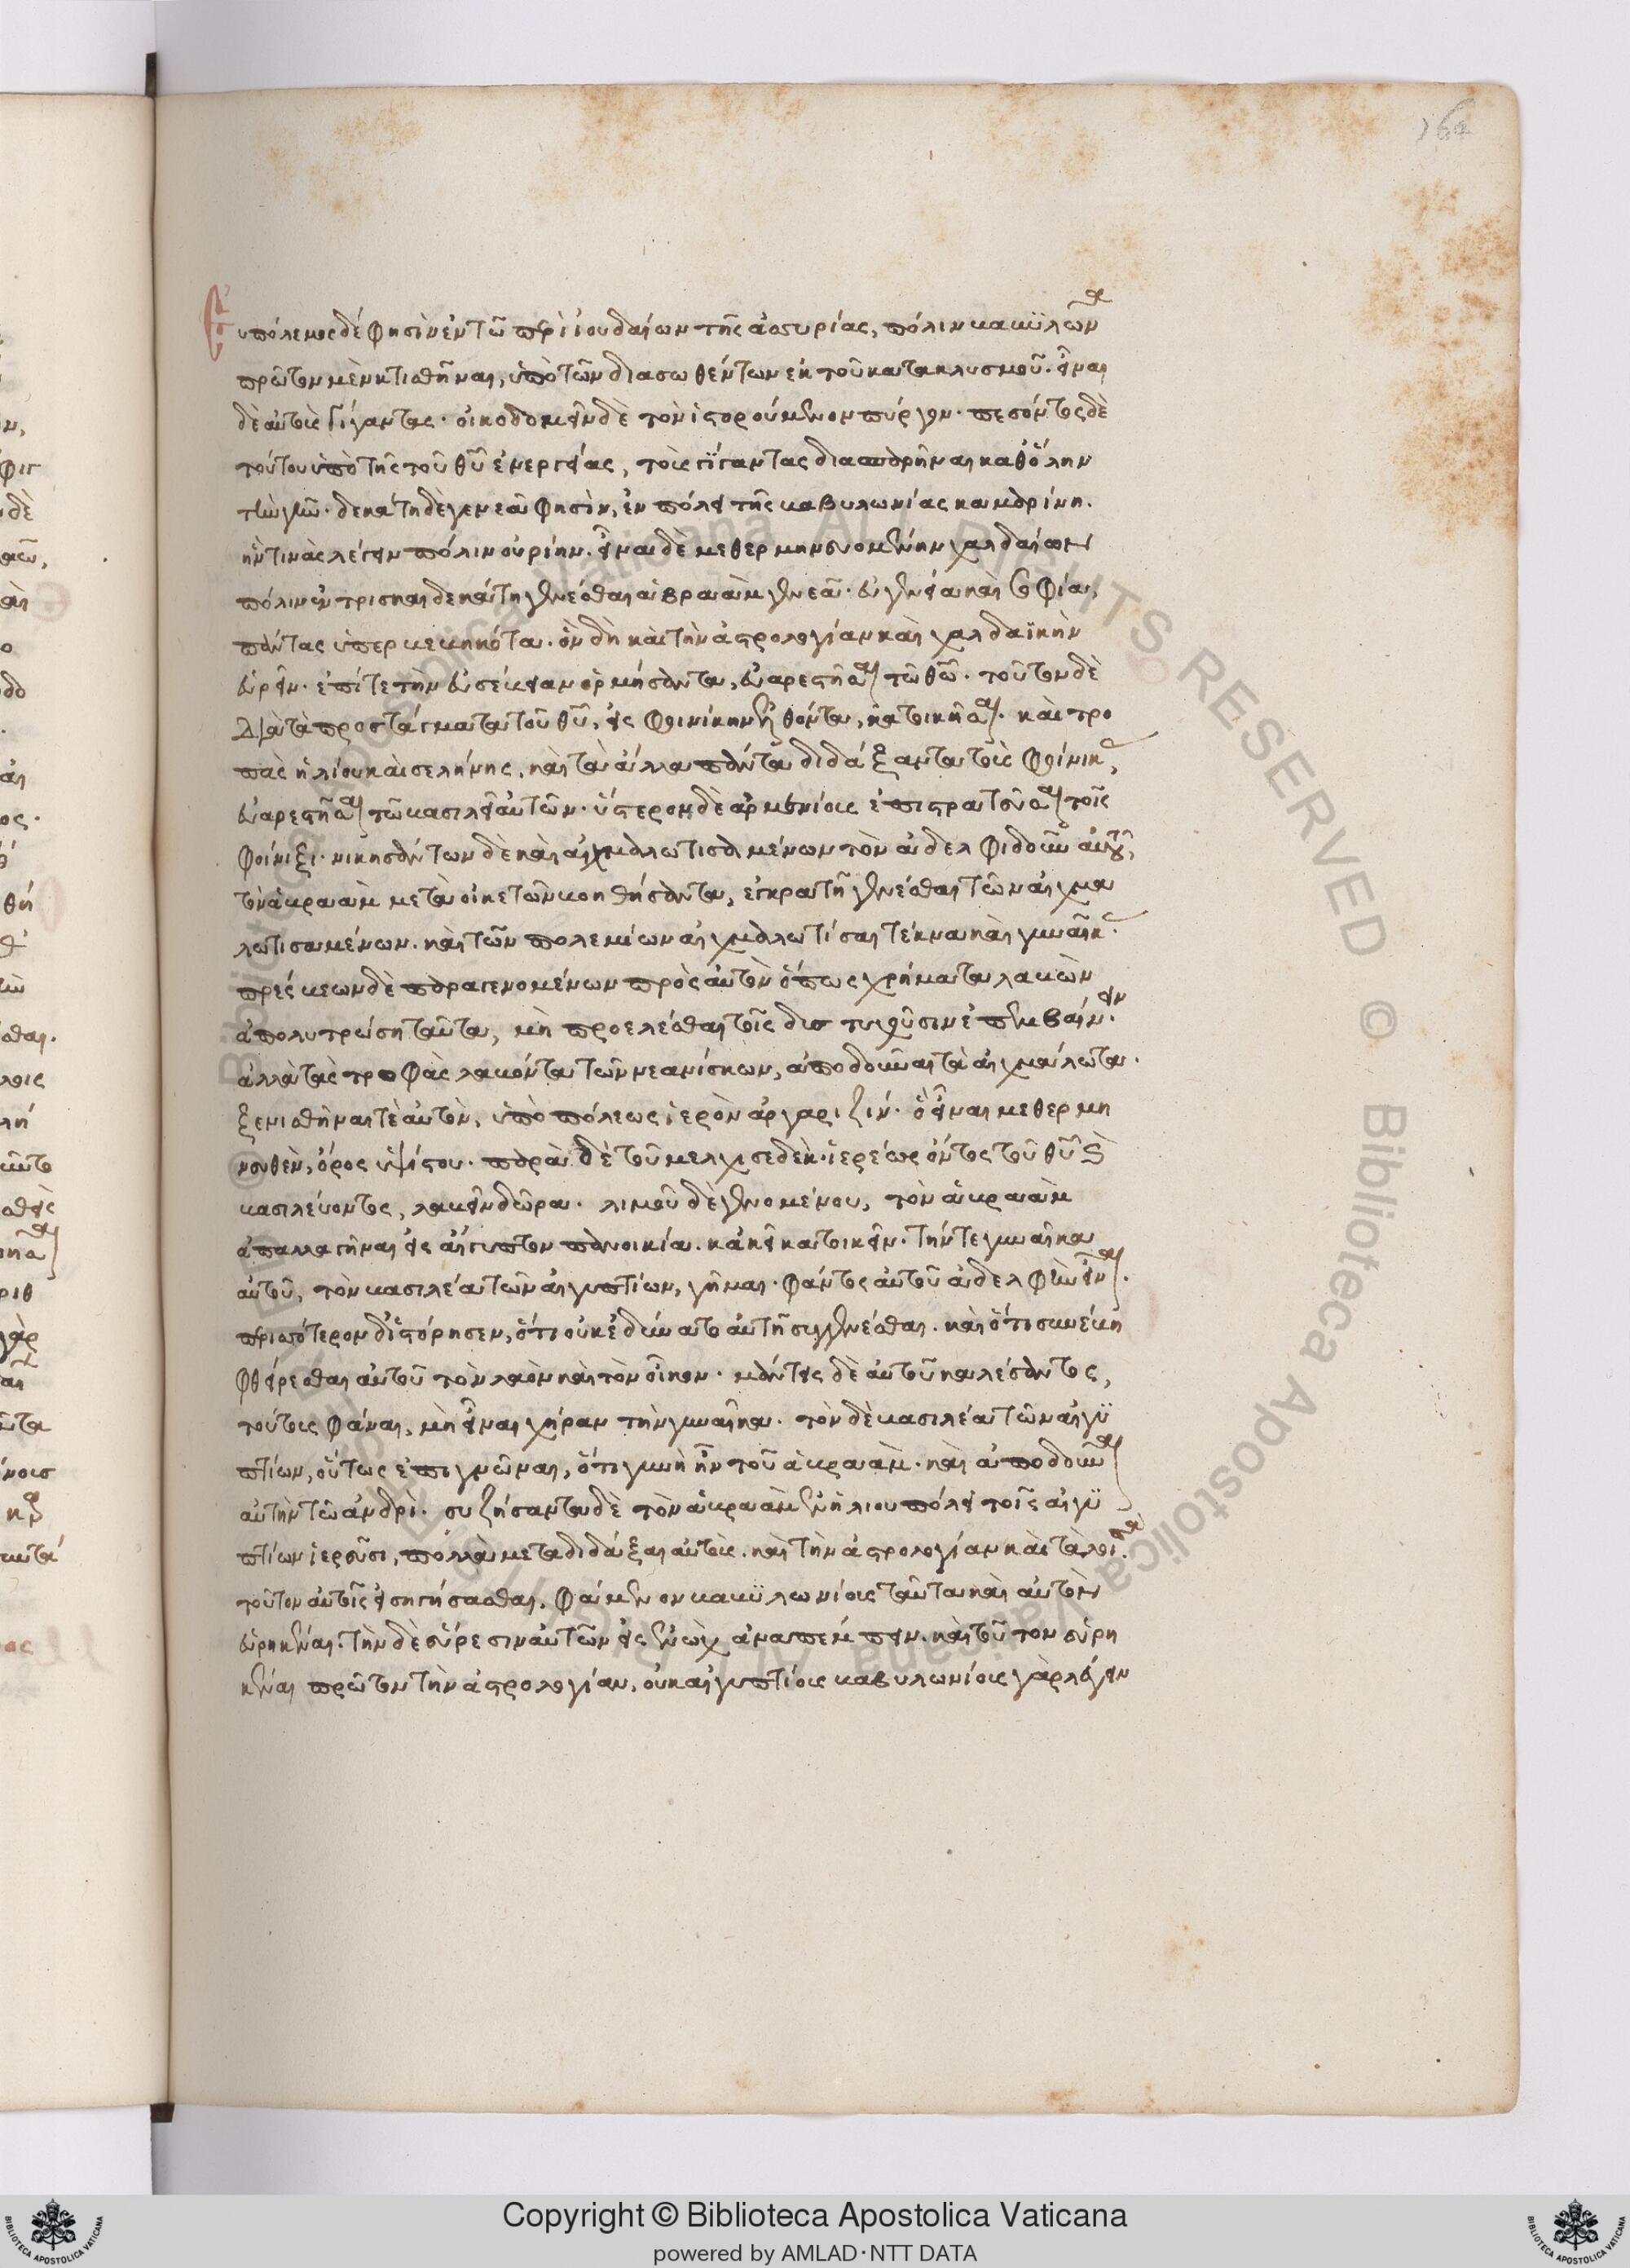 164
Εὐπόλεμος δέ φησὶν ἐν τῶ περὶ ἰουδαίων τῆς ἀσσυρίας, πόλιν βαβϋλῶνα
πρῶτον μὲν κτισθῆναι, ὑπὸ τῶν διασωθέντων ἐκ τοῦ κατακλυσμοῦ. εἶναι
δὲ αὐτοὺς γίγαντας· οἰκοδομεῖν δὲ τὸν ἱστορούμενον πύργον· πεσόντος δὲ
τούτου ὑπὸ τῆς τοῦ θῦ ἐνεργείας, τοὺς γίγαντας διασπαρῆναι καθ' ὅλην
τὴν γῆν. δεκάτη δὲ γενεᾶ φησὶν, ἐν πόλει τῆς βαβυλωνίας καμαρίνη.
ἥν τινας λέγειν πόλιν οὐρίην. εἶναι δὲ μεθερμηνευομένην χαλδαίων
πόλιν ἐν τρισκαιδεκάτη γενέσθαι ἀβραὰμ γενεᾶ. εὐγενεία καὶ σοφία,
πάντας ὑπερβεβηκότα. ὃν δὴ καὶ τὴν ἀστρολογίαν καὶ χαλδαϊκὴν
εὑρεῖν. ἐπί τε τὴν εὐσέβειαν ὁρμήσαντα, εὐαρεστῆσαι τῶ θῶ. τοῦτον δὲ
διὰ τὰ προστάγματα τοῦ θῦ, εἰς φοινίκην ἐλθόντα, κατοικῆσαι. καὶ τρο
πὰς ἡλίου καὶ σελήνης, καὶ τὰ ἄλλα πάντα διδάξαντα τοὺς φοίνικας,
εὐαρεστῆσαι τῶ βασιλεῖ αὐτῶν. ὕστερον δὲ ἀρμενίους ἐπιστρατεῦσαι τοῖς
φοίνιξι. νικησάντων δὲ καὶ αἰχμαλωτισαμένων τὸν ἀδελφιδοῦν αὐτοῦ,
τὸν ἀβραὰμ μετὰ οἰκετῶν βοηθήσαντα, ἐγκρατῆ γενέσθαι τῶν αἰχμα
λωτισαμένων. καὶ τῶν πολεμίων αἰχμαλωτίσαι τέκνα καὶ γυναῖκας.
πρέσβεων δὲ παραγενομένων πρὸς αὐτὸν ὅπως χρήματα λαβὼν
ἀπολυτρώση ταῦτα, μὴ προελέσθαι τοῖς δυστυχοῦσιν ἐπεμβαίνειν.
ἀλλὰ τὰς τροφὰς λαβόντα τῶν νεανίσκων, ἀποδοῦναι τὰ αἰχμάλωτα.
ξενισθῆναί τε αὐτὸν, ὑπὸ πόλεως ἱερὸν ἀργαριζίν. ὃ εἶναι μεθερμη
νευθὲν, ὄρος ὑψίστου. παρὰ δὲ τοῦ μελχισεδὲκ ἱερέως ὄντος τοῦ θῦ καὶ
βασιλεύοντος, λαβεῖν δῶρα. λιμοῦ δὲ γενομένου, τὸν ἀβραὰμ
ἀπαλλαγῆναι εἰς αἴγυπτον πανοικία. κἀκεῖ κατοικεῖν. τήν τε γυναῖκα
αὐτοῦ, τὸν βασιλέα τῶν αἰγυπτίων, γῆμαι. φάντος αὐτοῦ ἀδελφὴν εἶναι.
περισσότερον δ' ἱστόρησεν, ὅτι οὐκ ἐδύνατο αὐτῆ συγγενέσθαι. καὶ ὅτι συνέβη
φθείρεσθαι αὐτοῦ τὸν λαὸν καὶ τὸν οἶκον. μάντεις δὲ αὐτοῦ καλέσαντος,
τούτους φάναι, μὴ εἶναι χήραν τὴν γυναῖκα. τὸν δὲ βασιλέα τῶν αἰγϋ
πτίων, οὕτως ἐπιγνῶναι, ὅτι γυνὴ ἦν τοῦ ἀβραὰμ. καὶ ἀποδοῦναι
αὐτὴν τῶ ἀνδρί. συζήσαντα δὲ τὸν ἀβραὰμ ἐν ἡλιουπόλει τοῖς αἰγϋ
πτίων ἱερεῦσι, πολλὰ μεταδιδάξαι αὐτοὺς. καὶ τὴν ἀστρολογίαν καὶ τὰ λοιπὰ
τοῦτον αὐτοῖς εἰσηγήσασθαι. φάμενον βαβϋλωνίους ταῦτα καὶ αὐτὸν
εὑρηκέναι. τὴν δὲ εὕρεσιν αὐτῶν εἰς ἐνὼχ ἀναπέμπειν. καὶ τοῦτον εὑρη
κέναι πρῶτον τὴν ἀστρολογίαν, οὐκ αἰγυπτίους βαβυλωνίους γὰρ λέγειν
Copyright © Biblioteca Apostolica Vaticana
powered by AMLAD·NTT DATA